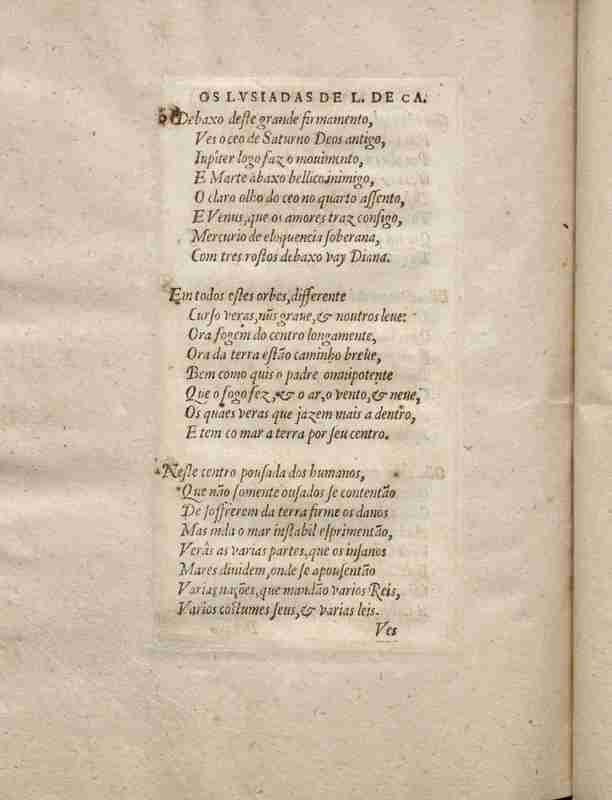 OS LVSIADAS DE L. DE CA.
Debaxo deſte grande firmamento,
Ves o ceo de Saturno Deos antigo,
Iupiter logo faz o mouimento,
E Marte abaxo bellico inimigo,
O claro olho do ceo no quarto aſſento,
E Venus, que os amores traz conſigo,
Mercurio de eloquencia ſoberana,
Com tres roſtos debaxo vay Diana.
Em todos eſtes orbes, differente
Curſo veras, nũs graue, & noutros leue:
Ora fogem do centro longamente,
Ora da terra eſtão caminho breue,
Bem como quis o padre omnipotente
Que o fogo fez, & o ar, o vento, & neue,
Os quaes veras que jazem mais a dentro,
E tem co mar a terra por ſeu centro.
Neſte centro pouſada dos humanos,
Que não ſomente ouſados ſe contentão
De ſoffrerem da terra firme os danos
Mas inda o mar inſtabil eſprimentão,
Verás as varias partes, que os inſanos
Mares diuidem, onde ſe apouſentão
Varias nações, que mandão varios Reis,
Varios coſtumes ſeus, & varias leis.
Ves